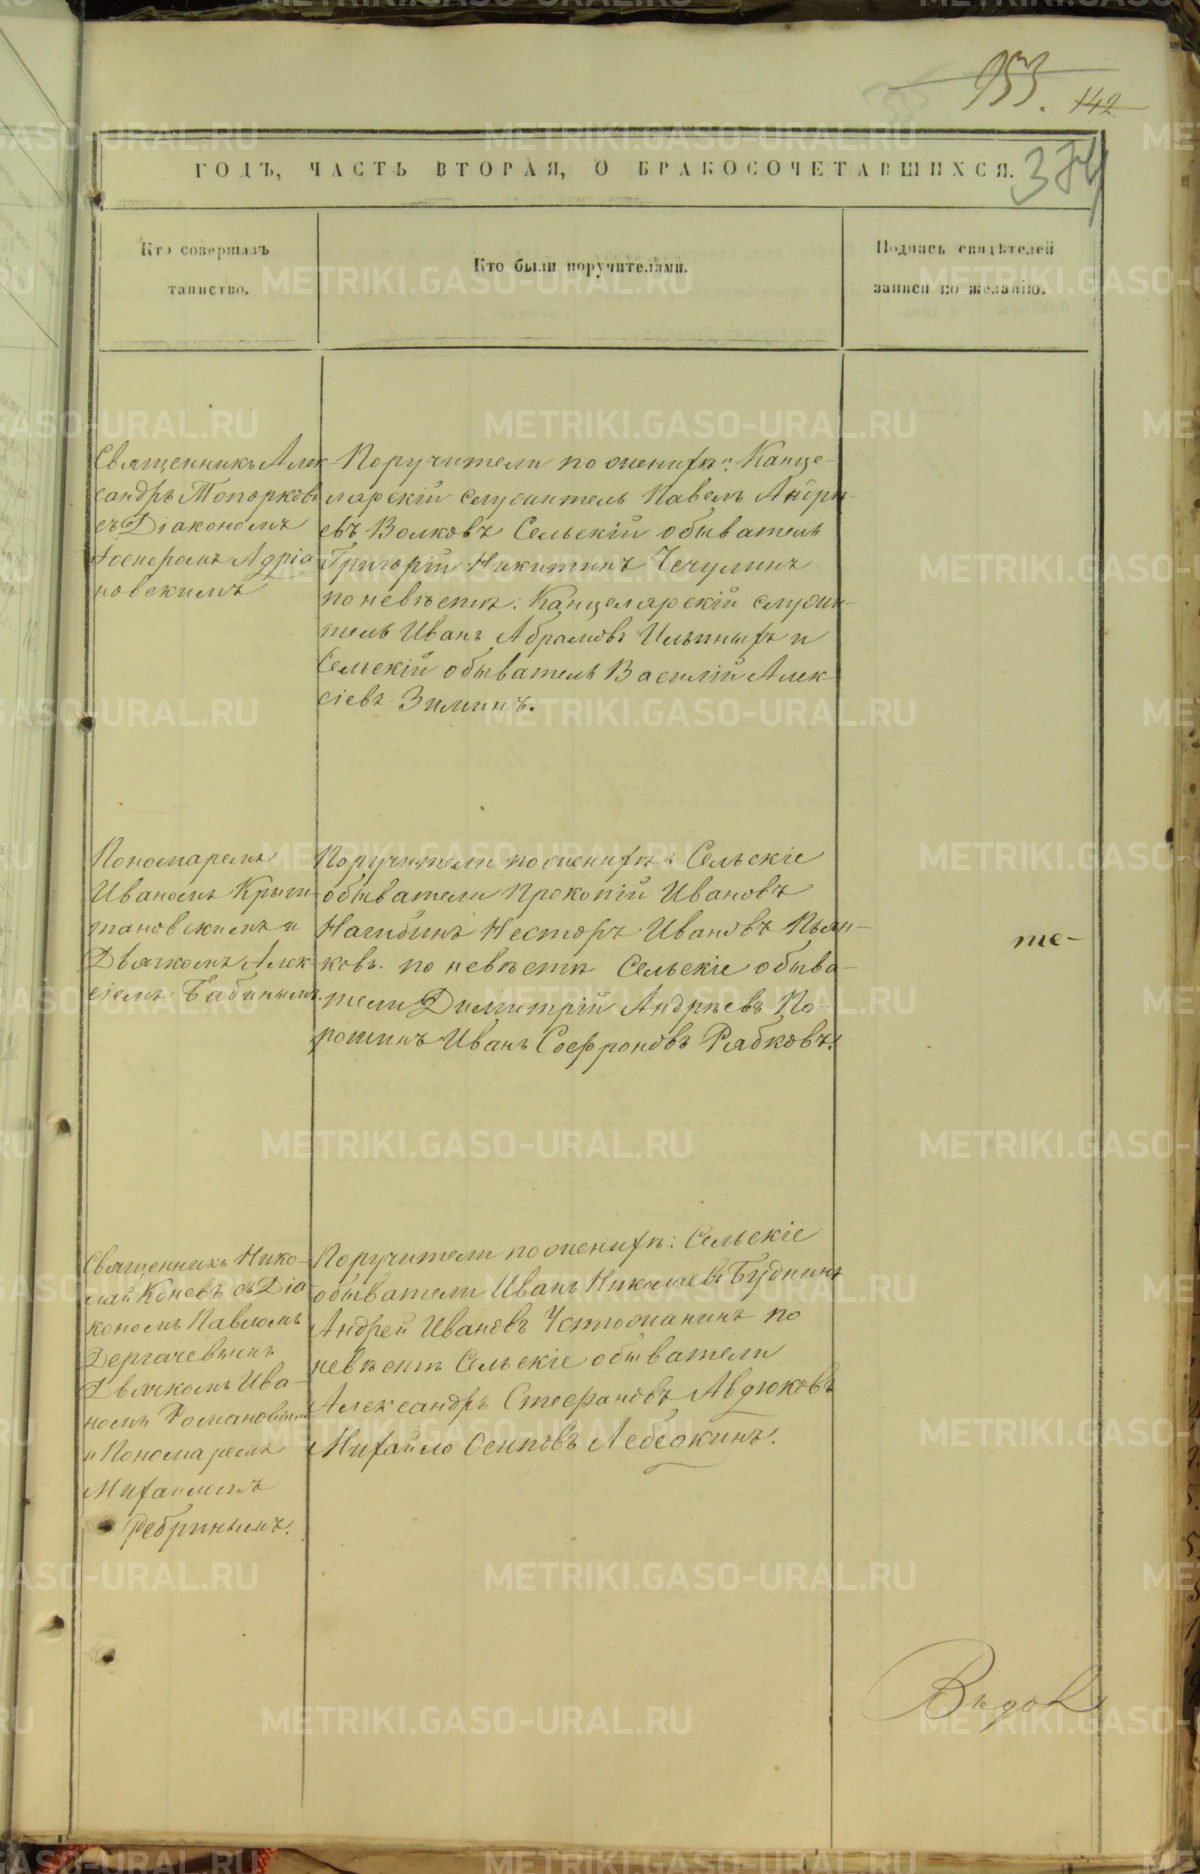 953.
142
384
ГОДЪ, ЧАСТЬ ВТОРАЯ, О БРАКОСОЧЕТАВШИХСЯ.
Кто совершалъ
таинство.
Кто были поручителями.
Подпись свидѣтелей
записи по желанію.
Священникъ Алек-
сандръ Топорковъ
съ Діакономъ
Адріа
новскимъ
Поручители по женихѣ: Канце-
лярскій служитель Павелъ Андрѣ-
евъ Волковъ Сельскій обыватель
Григорій Никитинъ Чечулинъ
по невѣстѣ: Канцелярскій служи-
тель Иванъ Абрамовъ Ильиныхъ и
Сельскій обыватель Василій Алек
сіевъ Зиминъ.
Пономаремъ
Иваномъ
тановскимъ и
Дьячкомъ Алек
сіемъ Бабинымъ.
Поручители по женихѣ: Сельскіе
обыватели Прокопій Ивановъ
Нагибинъ Несторъ Ивановъ Пьян-
ковъ. по невѣстѣ Сельскіе обыва-
тели Димитрій Андреевъ По-
рошинъ Иванъ Софроновъ Рябковъ.
те-
Священникъ Нико-
лай Коневъ съ Діа
кономъ Павломъ
Дергачевымъ
Дьячкомъ Ива-
номъ Романовымъ
и Пономаремъ
Михаиломъ
Ребринымъ.
Поручители по женихѣ: Сельскіе
обыватели Иванъ Николаевъ Будкинъ
Андрей Ивановъ Устюжанинъ по
невѣстѣ Сельскіе обыватели
Александръ Стефановъ Авдюковъ
Михайло Осиповъ Лебедкинъ.
METRIKI.GASO-URAL.RU